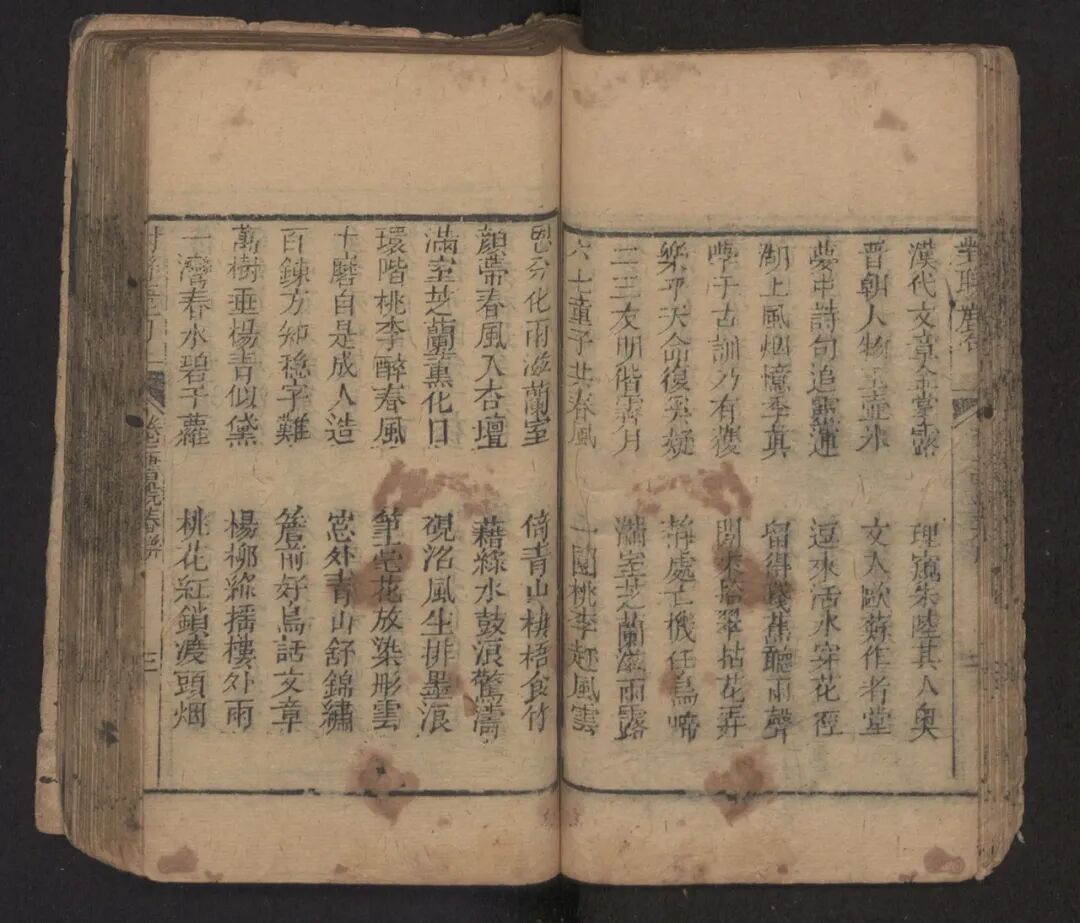 對聯
漢代文章金掌露
理窩朱陸其人奧
晋朝人物玉壺氷
文入歐蘇作者堂
夢中詩句追靈運
逗來活水穿花徑
湖上風烟憶季真
留得殘蕉聽雨聲
學于古訓乃有穫
閒來 翠拈花弄
樂乎天命復奚疑
靜處亡機任鳥啼
二三友明偕霽月
滿室芝蘭滋雨露
六七童子共春風
一園桃李趂風雲
恩分化雨滋蘭室
倚青山棲梧食竹
顔帶春風入杏壇
藉綠水鼓浪驚濤
滿室芝蘭薰化日
硯沼風生排墨浪
環階桃李醉春風
筆花放染形雲
十磨自是成人造
窓外青山舒錦繡
百鍊方知穩字難
簷前好鳥話文章
萬樹垂楊青似黛
楊柳綠搖樓外雨
一灣春水碧于蘿
桃花紅鎖渡頭烟
卷 書院春聯
三